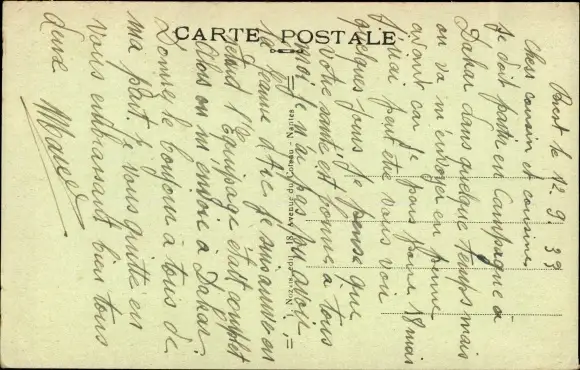 CARTE POSTALE
Brest le 12. 9. 39
Chers cousin et cousine
Je dois partir en Campagne à
Dakar dans quelque temps mais
on va m'envoyer en perme
avant car je pars pour 18 mais
J'irai peut être vous voir
quelques jours Je pense que
votre santé est bonne à tous
moi je n'ai pas pu avoir
la Jeanne d'Arc Je suis arrivé en
retard l'Equipage était complet
Alors on m'envoie à Dakar.
Donnez le bonjour à tous de
ma part. Je vous quitte en
vous embrassant bien tous
deux
Marcel
J. Nozais, phot. - Nantes